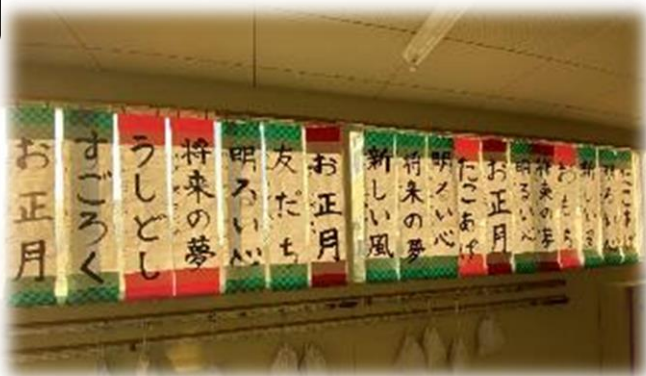 お正月
すごろく
うしどし
将来の夢
明るい心
友だち
お正月
新しい風
将来の夢
明るい心
たこあげ
お正月
明るい心
将来の夢
おもち
新しい風
明るい心
たこあげ